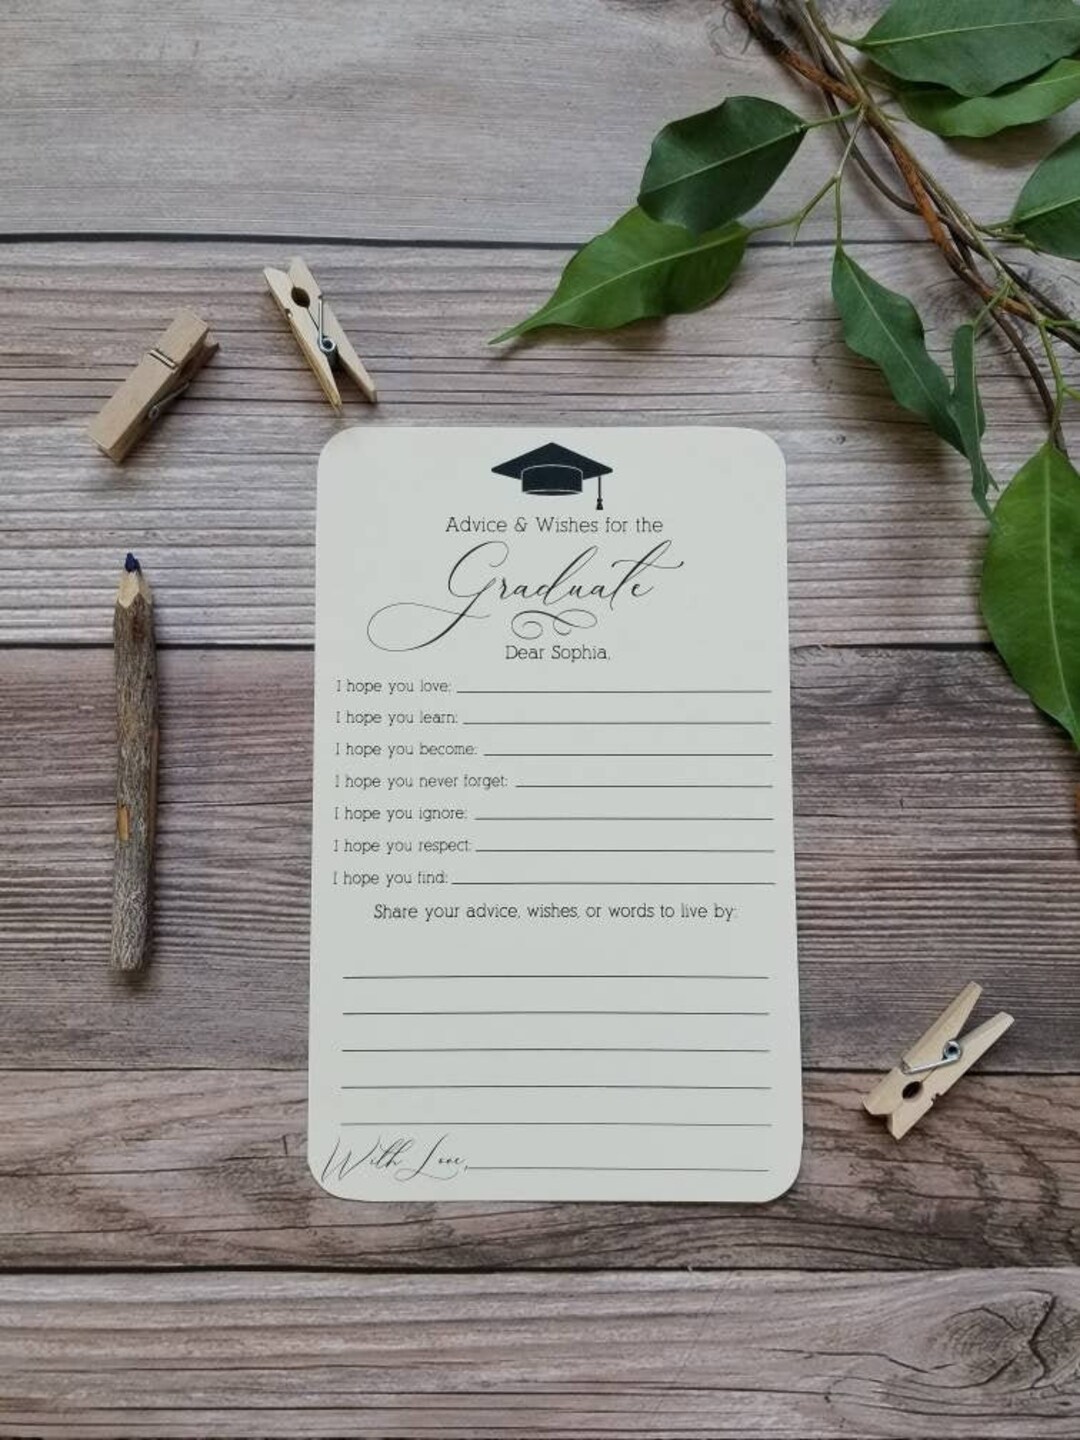 Advice & Wishes for the
Graduate
Dear Sophia,
I hope you love:
I hope you learn:
I hope you become:
I hope you never forget:
I hope you ignore:
I hope you respect:
I hope you find:
Share your advice, wishes, or words to live by:
With Love,